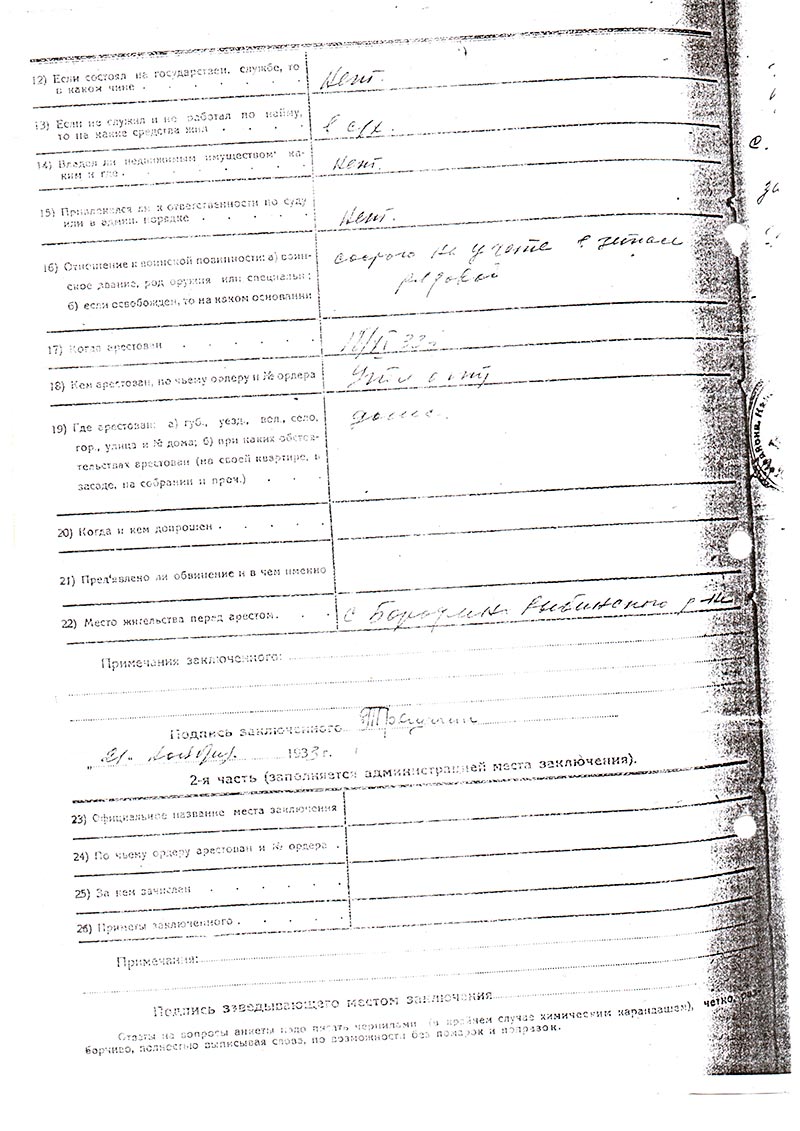 12) Если состоял на государствен. службе, то
в каком чине . . . . . . Нет.
13) Если не служил и не работал по найму,
то на какие средства жил . . . . в с/х.
14) Владел ли недвижимым имуществом ка-
ким и где . . . . . . . Нет.
15) Привлекался ли к ответственности по суду
или в админ. порядке . . . . . Нет.
16) Отношение к воинской повинности: а) воин-
ское звание, род оружия или специальн.;
б) если освобожден, то на каком основании
на учете в
рядовой
17) Когда арестован . . . . . .
18) Кем арестован, по чьему ордеру и № ордера
19) Где арестован: а) губ., уезд., вол., село,
гор., улица и № дома; б) при каких обстоя-
тельствах арестован (на своей квартире, в
засаде, на собрании и проч.) . . .
дома.
20) Когда и кем допрошен . . . . .
21) Пред'явлено ли обвинение и в чем именно
22) Место жительства перед арестом. . . с Бородино Рыбинского р-на
Примечания заключенного:
Подпись заключенного
„21. ноября 1933 г.
2-я часть (заполняется администрацией места заключения).
23) Официальное название места заключения
24) По чьему ордеру арестован и № ордера .
25) За кем зачислен . . . . .
26) Приметы заключенного . . . . .
Примечания:
Подпись заведывающего местом заключения
Ответы на вопросы анкеты надо писать чернилами (в крайнем случае химическим карандашем), четко, раз-
борчиво, полностью выписывая слова, по возможности без помарок и поправок.